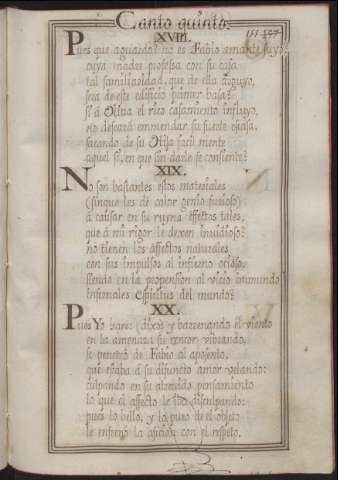 Canto quinto.
151
XVIII.
Pues que aguardo? no es Fabio amante suyo,
cuya madre professa con su casa
tal familiaridad, que de ella arguyo,
sera de este edificio primer basa?
si à Oliva el rico casamiento influyo,
no deseará enmendar su suerte escasa,
sacando de su Otija facil mente
aquel si, en que sin darle se consiente?
XIX.
No son bastantes estos materiales
(sin que les dè calor genio furioso)
à causar en su ruyna effectos tales,
que à mi rigor le dexen invidioso?
no tienen los affectos naturales
con sus impulsos al infierno ocioso,
siendo en la propension al vicio immundo
infernales Espiritus del mundo?
XX.
Pues Yo harè: (dixo) y barrenando el viento
en la amenaza su rencor vibrando,
se penetró de Fabio al aposento,
que estaba à su difuncto amor velando:
culpando en su atrevido pensamiento
lo que el affecto le iba disculpando:
pues lo bello, y lo puro de el objeto
le infernò la aficion con el respeto.